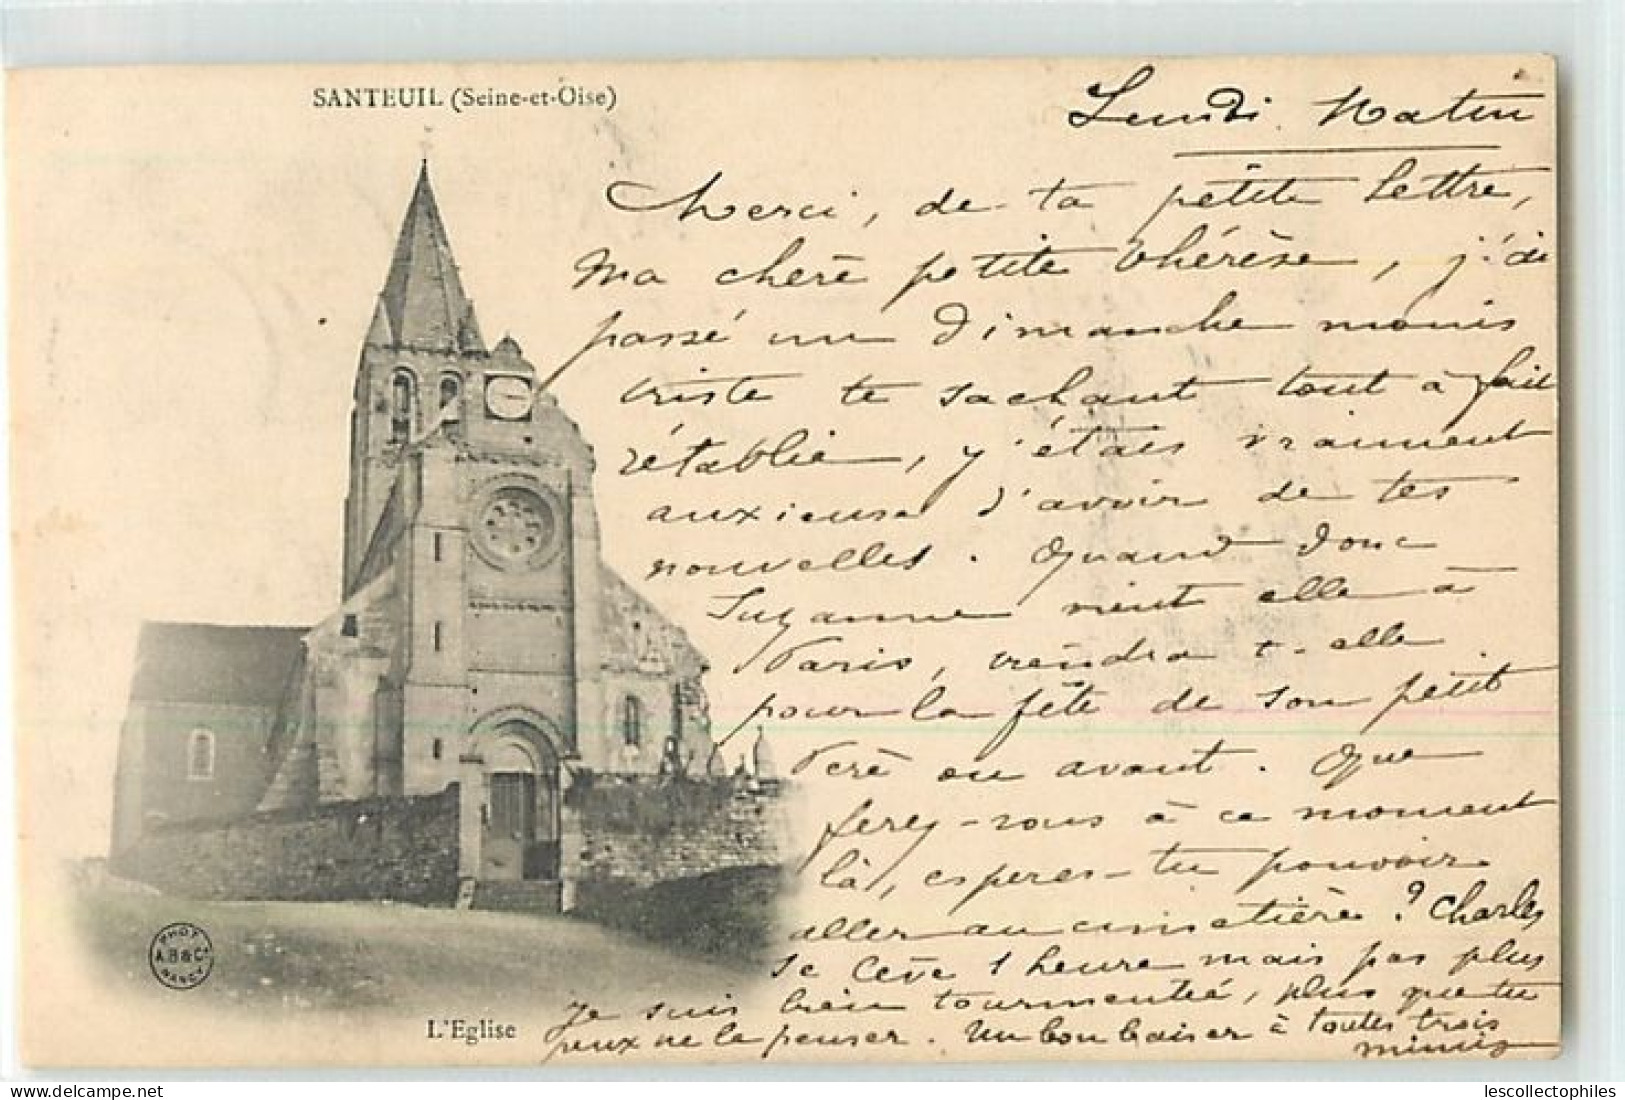 SANTEUIL (Seine-et-Oise)
Lundi Matin
Merci, de ta pètite lettre,
Ma chère petite Thérèse, j'ai
passé un Dimanche moins
triste te sachant tout à fait
rétablie, j'étais vraiment
anxieuse d'avoir de tes
nouvelles. Quand donc
Suzanne vient elle à
Paris, viendra t-elle
pour la fête de son petit
Père ou avant. Que
ferez-vous à ce moment
là, esperes-tu pouvoir
aller au cimetière ? Charles
se lève 1 heure mais pas plus
je suis bien tourmentée, plus que tu
peux ne le penser. Un bon baiser à toutes trois
L'Eglise
PHOT
A.B & Cie
NANCY
lescollectophiles